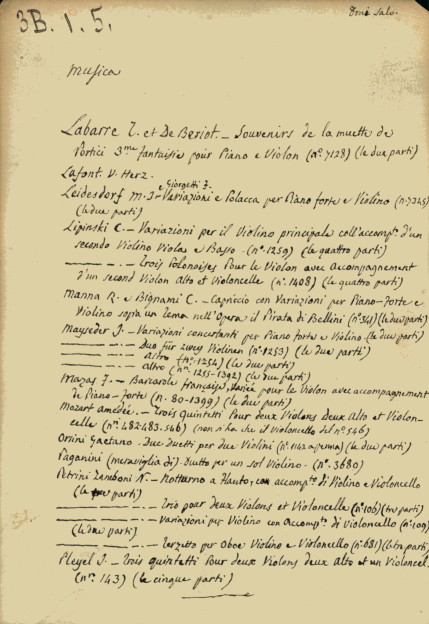 3B. 1. 5.
Musica
Labarre T. et De Beriot. _ Souvenirs de la muette de
Portici 3.me fantaisie pour Piano e Violon (n.o 7128) (le due parti)
Lafont. V. Herz.
e Giorgetti F.
Leidesdorf M. J. - Variazioni e Polacca per Piano forte e Violino (n. 7345)
(le due parti)
Lipinski C. - Variazioni per il Violino principale coll'accomp.to d'un
secondo Violino Viola e Basso - (n.o 1259) (le quattro parti)
_ . _ . - Trois Polonoises Pour le Violon avec Accompagnement
d'un second Violon Alto et Violoncelle (n.o 1408) (le quattro parti)
Manna R. e Bignami C. - Capriccio con Variazioni per Piano-Forte e
Violino sopra un Tema nell'Opera il Pirata di Bellini (n.o 341) (le due parti)
Mayseder J. - Variazioni concertanti per Piano forte e Violino (le due parti)
_ . _ . - duo für zwey Violinen (n.o 1253) (le due parti)
_ . _ . - altro (n.o 1254) (le due parti)
_ . _ . - altro (n.o 1255-1392) (le due parti)
Mazas F. - Barcarole française, Variée pour le Violon avec accompagnement
de Piano-Forte (n. 80-1399) (le due parti)
Mozart Amedée. - Trois Quintetti Pour deux Violons Deux Alto et Violon-
celle (n.i 482.483.546) (non si ha che il violoncello del n.o 546)
Orsini Gaetano - Due Duetti per due Violini (n.o 1142 a penna) (le due parti)
Paganini (meraviglia di) - Duetto per un sol Violino - (n.o 3680)
Petrini Zamboni N. - Notturno a Flauto, con accomp.to di Violino e Violoncello
(le tre parti)
_ . _ . - Trio pour deux Violons et Violoncelle (n.o 106) (tre parti)
_ . _ . - Variazioni per Violino con Accomp.to di Violoncello (n.o 109)
(le due parti)
_ . _ . - Terzetto per Oboe Violino e Violoncello (n.o 681) (le tre parti)
Pleyel J. - Trois quintetti Pour deux Violons deux Alto et un Violoncel.
(n.o 143) (le cinque parti)